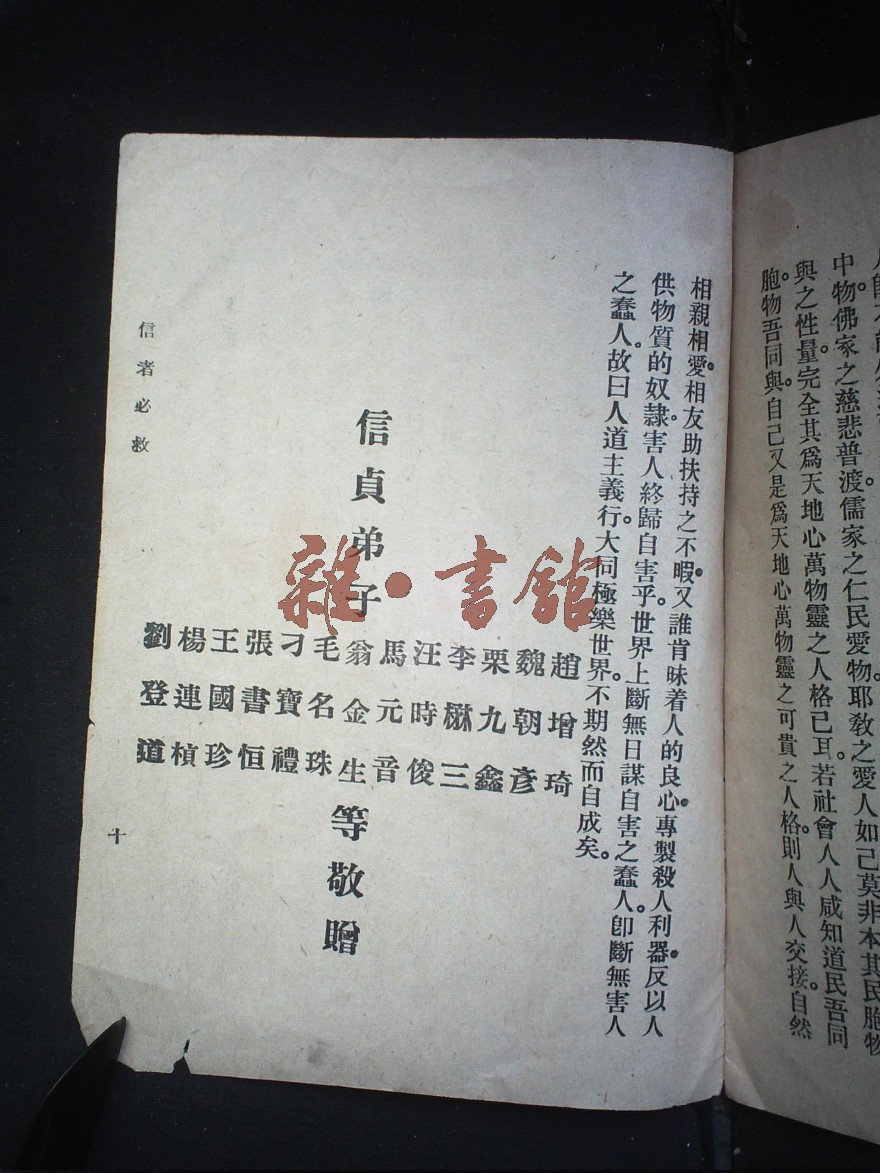 中物。佛家之慈悲普渡儒家之仁民愛物。耶敎之愛人如己莫非本其民胞物
與之性量。完全其爲天地心萬物靈之人格已耳。若社會人人咸知道民吾同
胞。物吾同與。自己又是爲天地心萬物靈之可貴之人格。則人與人交接。自然
相親相愛。相友助扶持之不暇。又誰肯昧着人的良心。專製殺人利器。反以人
供物質的奴隸。害人終歸自害乎。世界上斷無日謀自害之蠢人。卽斷無害人
之蠢人。故曰人道主義行。大同極樂世界。不期然而自成矣。
信貞弟子
趙增琦
魏朝彥
栗九鑫
李楙三
汪時俊
馬元音
翁金生
毛名珠
刁寶禮
張書恒
王國珍
楊連楨
劉登道
等敬贈
信者必救
十
雜·書館